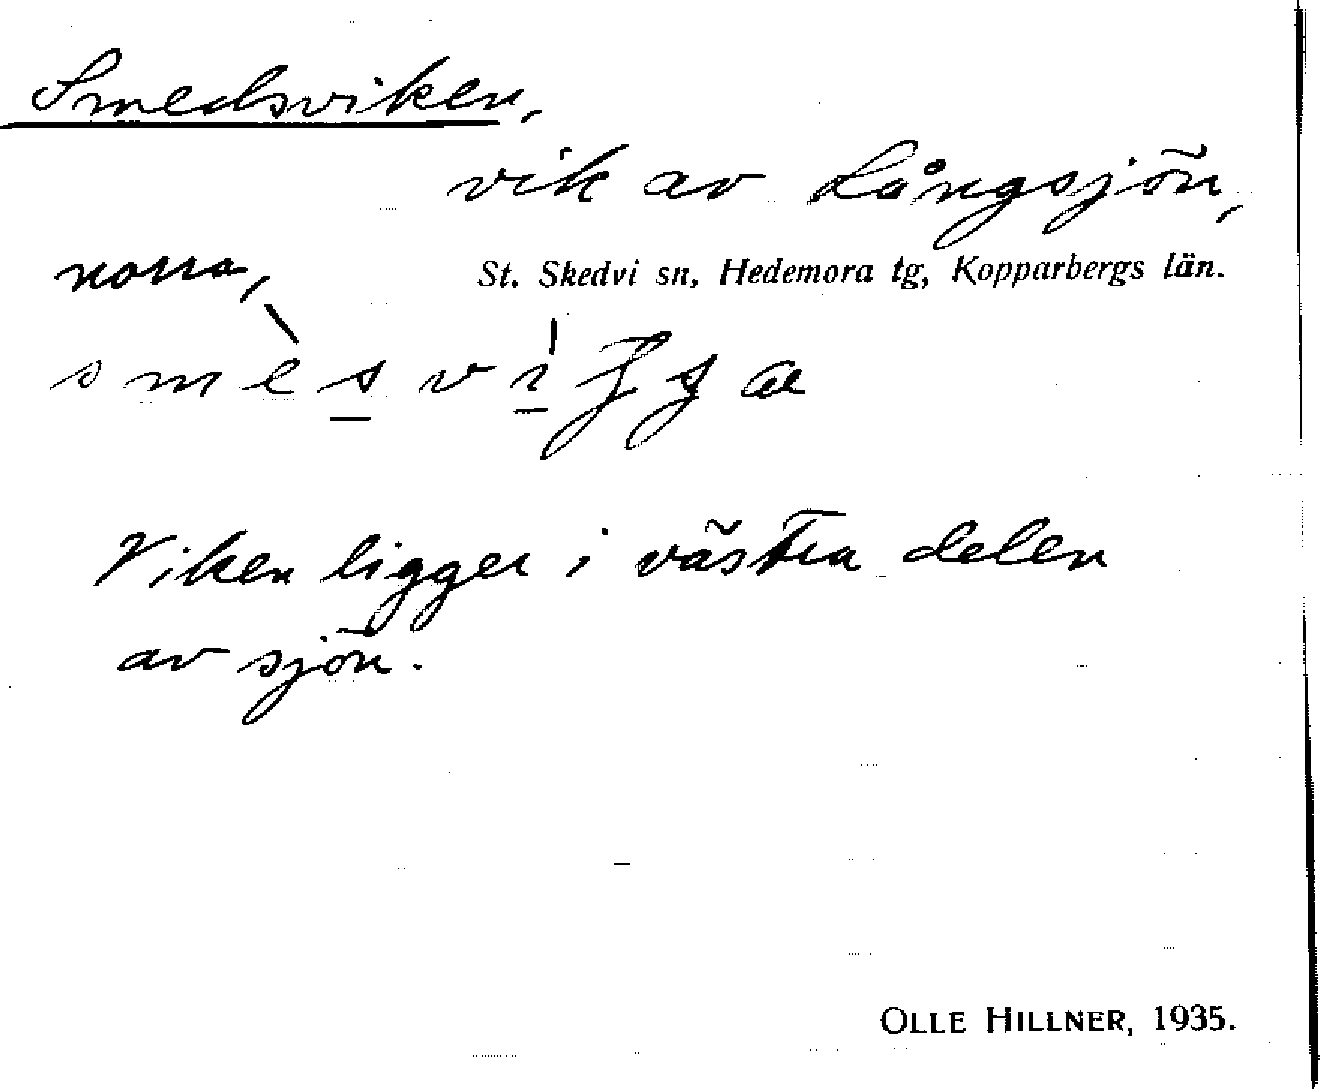 Smedsviken,
vik av Långsjön,
norra, St. Skedvi sn, Hedemora tg, Kopparbergs län.
Viken ligger i västra delen
av sjön.
OLLE HILLNER, 1935.